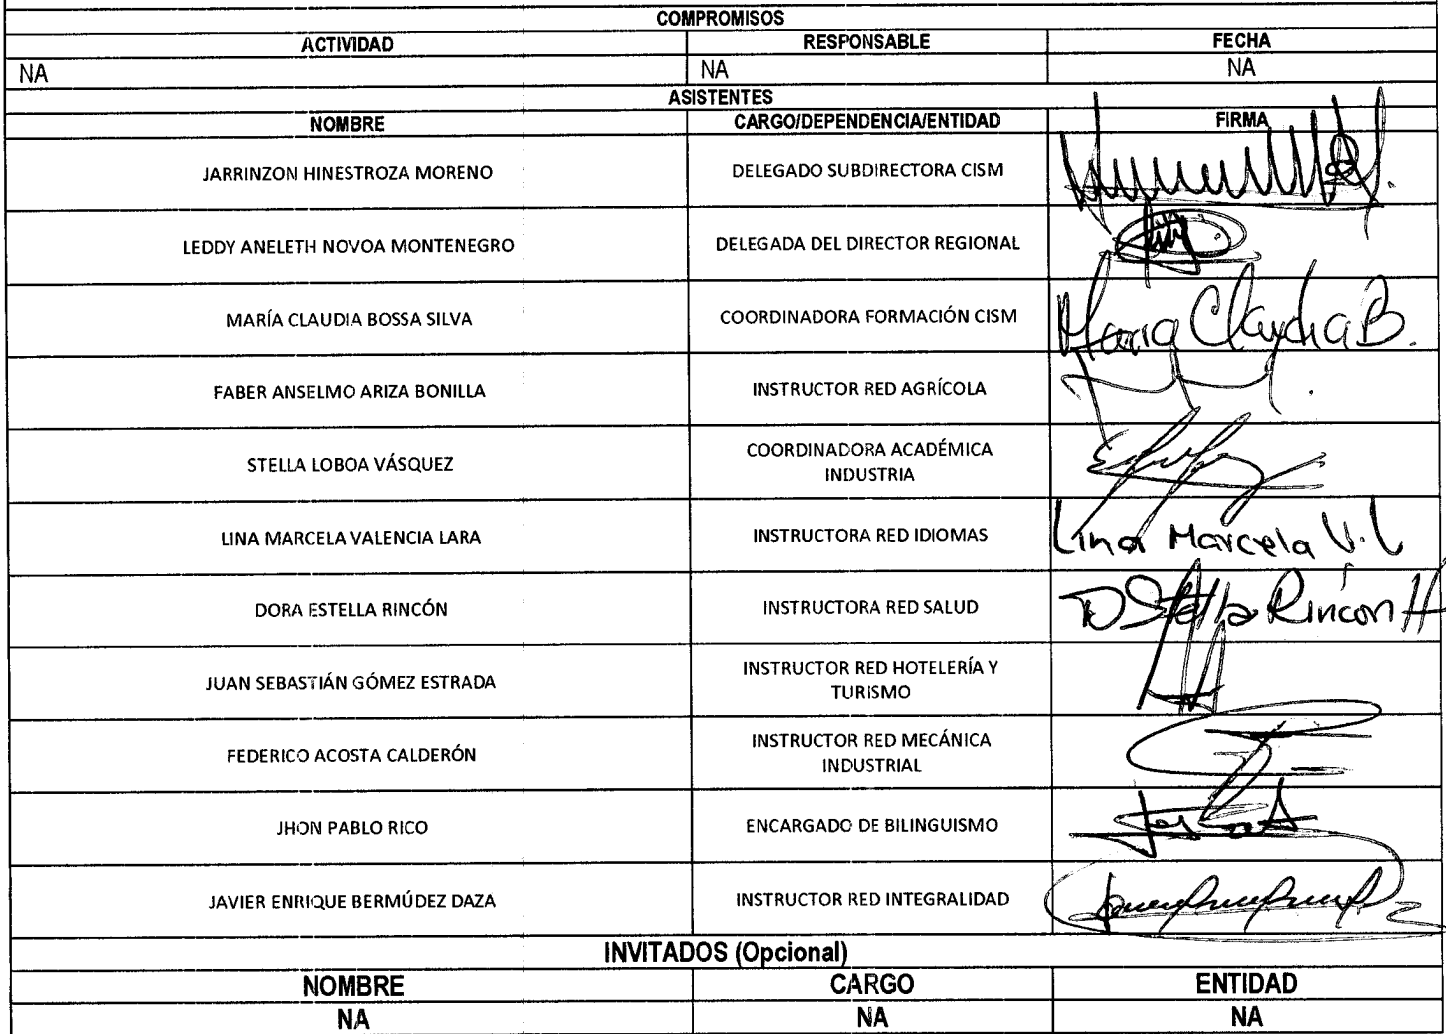 COMPROMISOS
ACTIVIDAD RESPONSABLE FECHA
NA NA NA
ASISTENTES
NOMBRE CARGO/DEPENDENCIA/ENTIDAD FIRMA
JARRINZON HINESTROZA MORENO DELEGADO SUBDIRECTORA CISM
LEDDY ANELETH NOVOA MONTENEGRO DELEGADA DEL DIRECTOR REGIONAL
MARÍA CLAUDIA BOSSA SILVA COORDINADORA FORMACIÓN CISM Maria Claudia B.
FABER ANSELMO ARIZA BONILLA INSTRUCTOR RED AGRÍCOLA
STELLA LOBOA VÁSQUEZ COORDINADORA ACADÉMICA
INDUSTRIA
LINA MARCELA VALENCIA LARA INSTRUCTORA RED IDIOMAS Lina Marcela V.L
DORA ESTELLA RINCÓN INSTRUCTORA RED SALUD D Stella Rincon H
JUAN SEBASTIÁN GÓMEZ ESTRADA INSTRUCTOR RED HOTELERÍA Y
TURISMO
FEDERICO ACOSTA CALDERÓN INSTRUCTOR RED MECÁNICA
INDUSTRIAL
JHON PABLO RICO ENCARGADO DE BILINGUISMO
JAVIER ENRIQUE BERMÚDEZ DAZA INSTRUCTOR RED INTEGRALIDAD
INVITADOS (Opcional)
NOMBRE CARGO ENTIDAD
NA NA NA